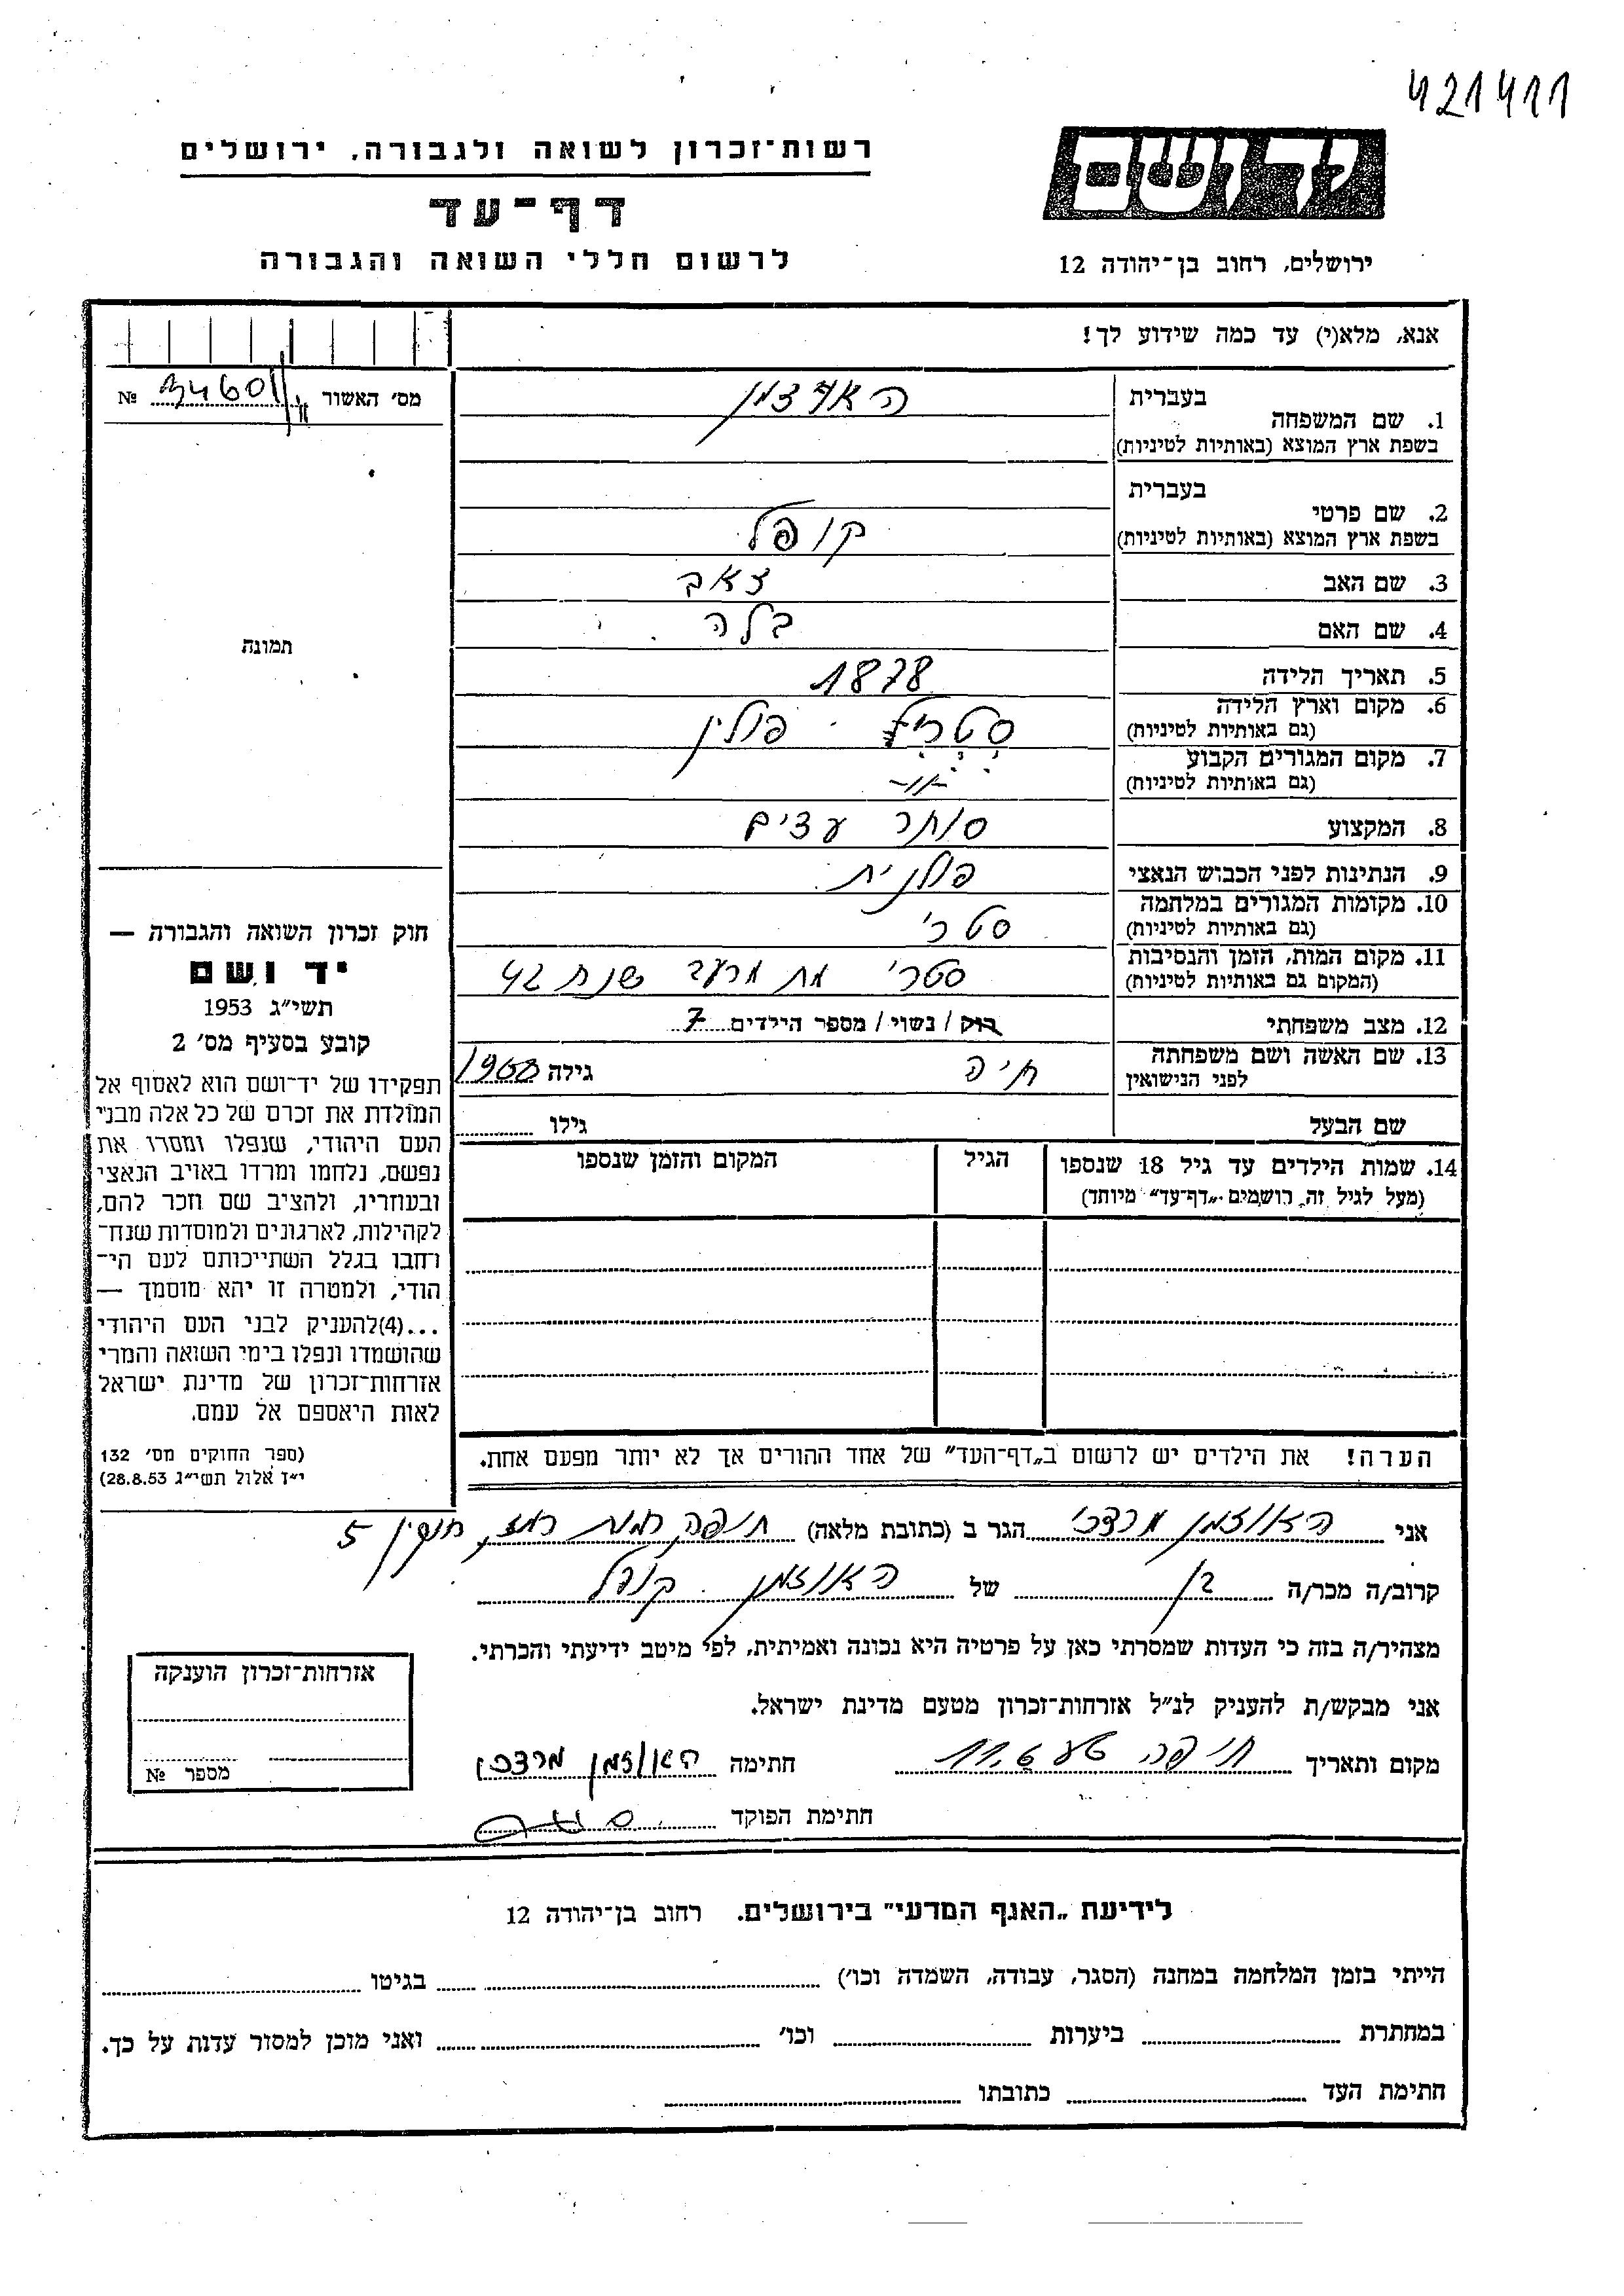 421411
יד ושם
ירושלים, רחוב בן־יהודה 12
רשות־זכרון לשואה ולגבורה, ירושלים
דף־עד
לרשום חללי השואה והגבורה
אנא, מלא(י) עד כמה שידוע לך!
מס' האשור № 34601
בעברית
1. שם המשפחה
בשפת ארץ המוצא (באותיות לטיניות)
בעברית
2. שם פרטי קופל
בשפת ארץ המוצא (באותיות לטיניות)
3. שם האב זאב
4. שם האם בלה
תמונה
5. תאריך הלידה 1878
6. מקום וארץ הלידה פולין
(גם באותיות לטיניות)
7. מקום המגורים הקבוע
(גם באותיות לטיניות)
8. המקצוע סוחר עצים
9. הנתינות לפני הכבוש הנאצי פולנית
10. מקומות המגורים במלחמה סטרי
(גם באותיות לטיניות)
11. מקום המות, הזמן והנסיבות סטרי מת מרעב שנת 42
(המקום גם באותיות לטיניות)
12. מצב משפחתי רוק / נשוי / מספר הילדים 7
13. שם האשה ושם משפחתה גילה
לפני הנישואין
שם הבעל גילו
14. שמות הילדים עד גיל 18 שנספו הגיל המקום והזמן שנספו
(מעל לגיל זה, רושמים „דף־עד” מיוחד)
הערה! את הילדים יש לרשום ב„דף־העד” של אחד ההורים אך לא יותר מפעם אחת.
חוק זכרון השואה והגבורה —
יד ושם
תשי״ג 1953
קובע בסעיף מס' 2
תפקידו של יד־ושם הוא לאסוף אל
המולדת את זכרם של כל אלה מבני
העם היהודי, שנפלו ומסרו את
נפשם, נלחמו ומרדו באויב הנאצי
ובעוזריו, ולהציב שם וזכר להם,
לקהילות, לארגונים ולמוסדות שנח־
רחבו בגלל השתייכותם לעם הי־
הודי, ולמטרה זו יהא מוסמך —
...(4)להעניק לבני העם היהודי
שהושמדו ונפלו בימי השואה והמרי
אזרחות־זכרון של מדינת ישראל
לאות היאספם אל עמם.
(ספר החוקים מס' 132
י״ז אלול תשי״ג 28.8.53)
אני האוזמן מרדכי הגר ב (כתובת מלאה) חיפה רמת רמז, 5
קרוב/ה מכר/ה בן של האוזמן קופל
מצהיר/ה בזה כי העדות שמסרתי כאן על פרטיה היא נכונה ואמיתית, לפי מיטב ידיעתי והכרתי.
אני מבקש/ת להעניק לנ״ל אזרחות־זכרון מטעם מדינת ישראל.
מקום ותאריך חיפה חתימה האוזמן מרדכי
חתימת הפוקד
אזרחות־זכרון הוענקה
מספר №
לידיעת „האגף המדעי” בירושלים. רחוב בן־יהודה 12
הייתי בזמן המלחמה במחנה (הסגר, עבודה, השמדה וכו') בגיטו
במחתרת ביערות וכו' ואני מוכן למסור עדות על כך.
חתימת העד כתובתו